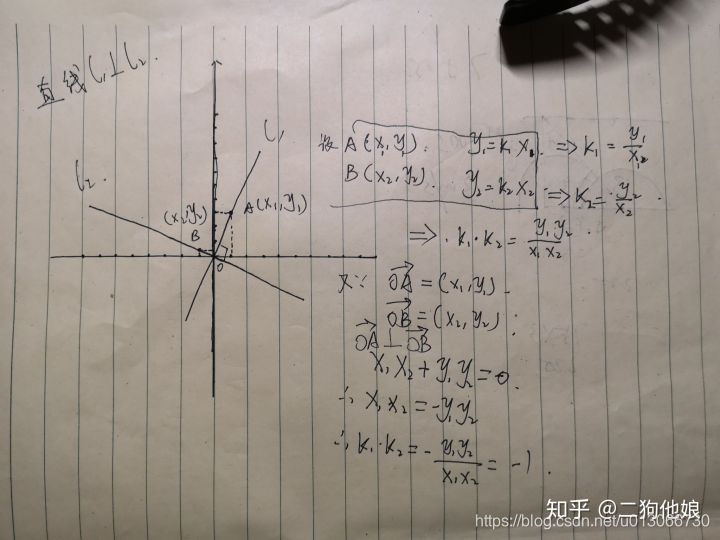 直线 l₁⊥l₂.
l₁
l₂
A(x₁,y₁)
(x₂,y₂)
B
O
设 A(x₁,y₁). y₁=k₁x₁ ⇒ k₁=y₁/x₁
B(x₂,y₂). y₂=k₂x₂ ⇒ k₂=y₂/x₂.
⇒ k₁·k₂=y₁y₂/x₁x₂.
又∵ OA=(x₁,y₁).
OB=(x₂,y₂);
OA⊥OB
x₁x₂+y₁y₂=0.
∴ x₁x₂=-y₁y₂
∴ k₁·k₂=-y₁y₂/x₁x₂=-1.
知乎 @二狗他娘
https://blog.csdn.net/u013066730